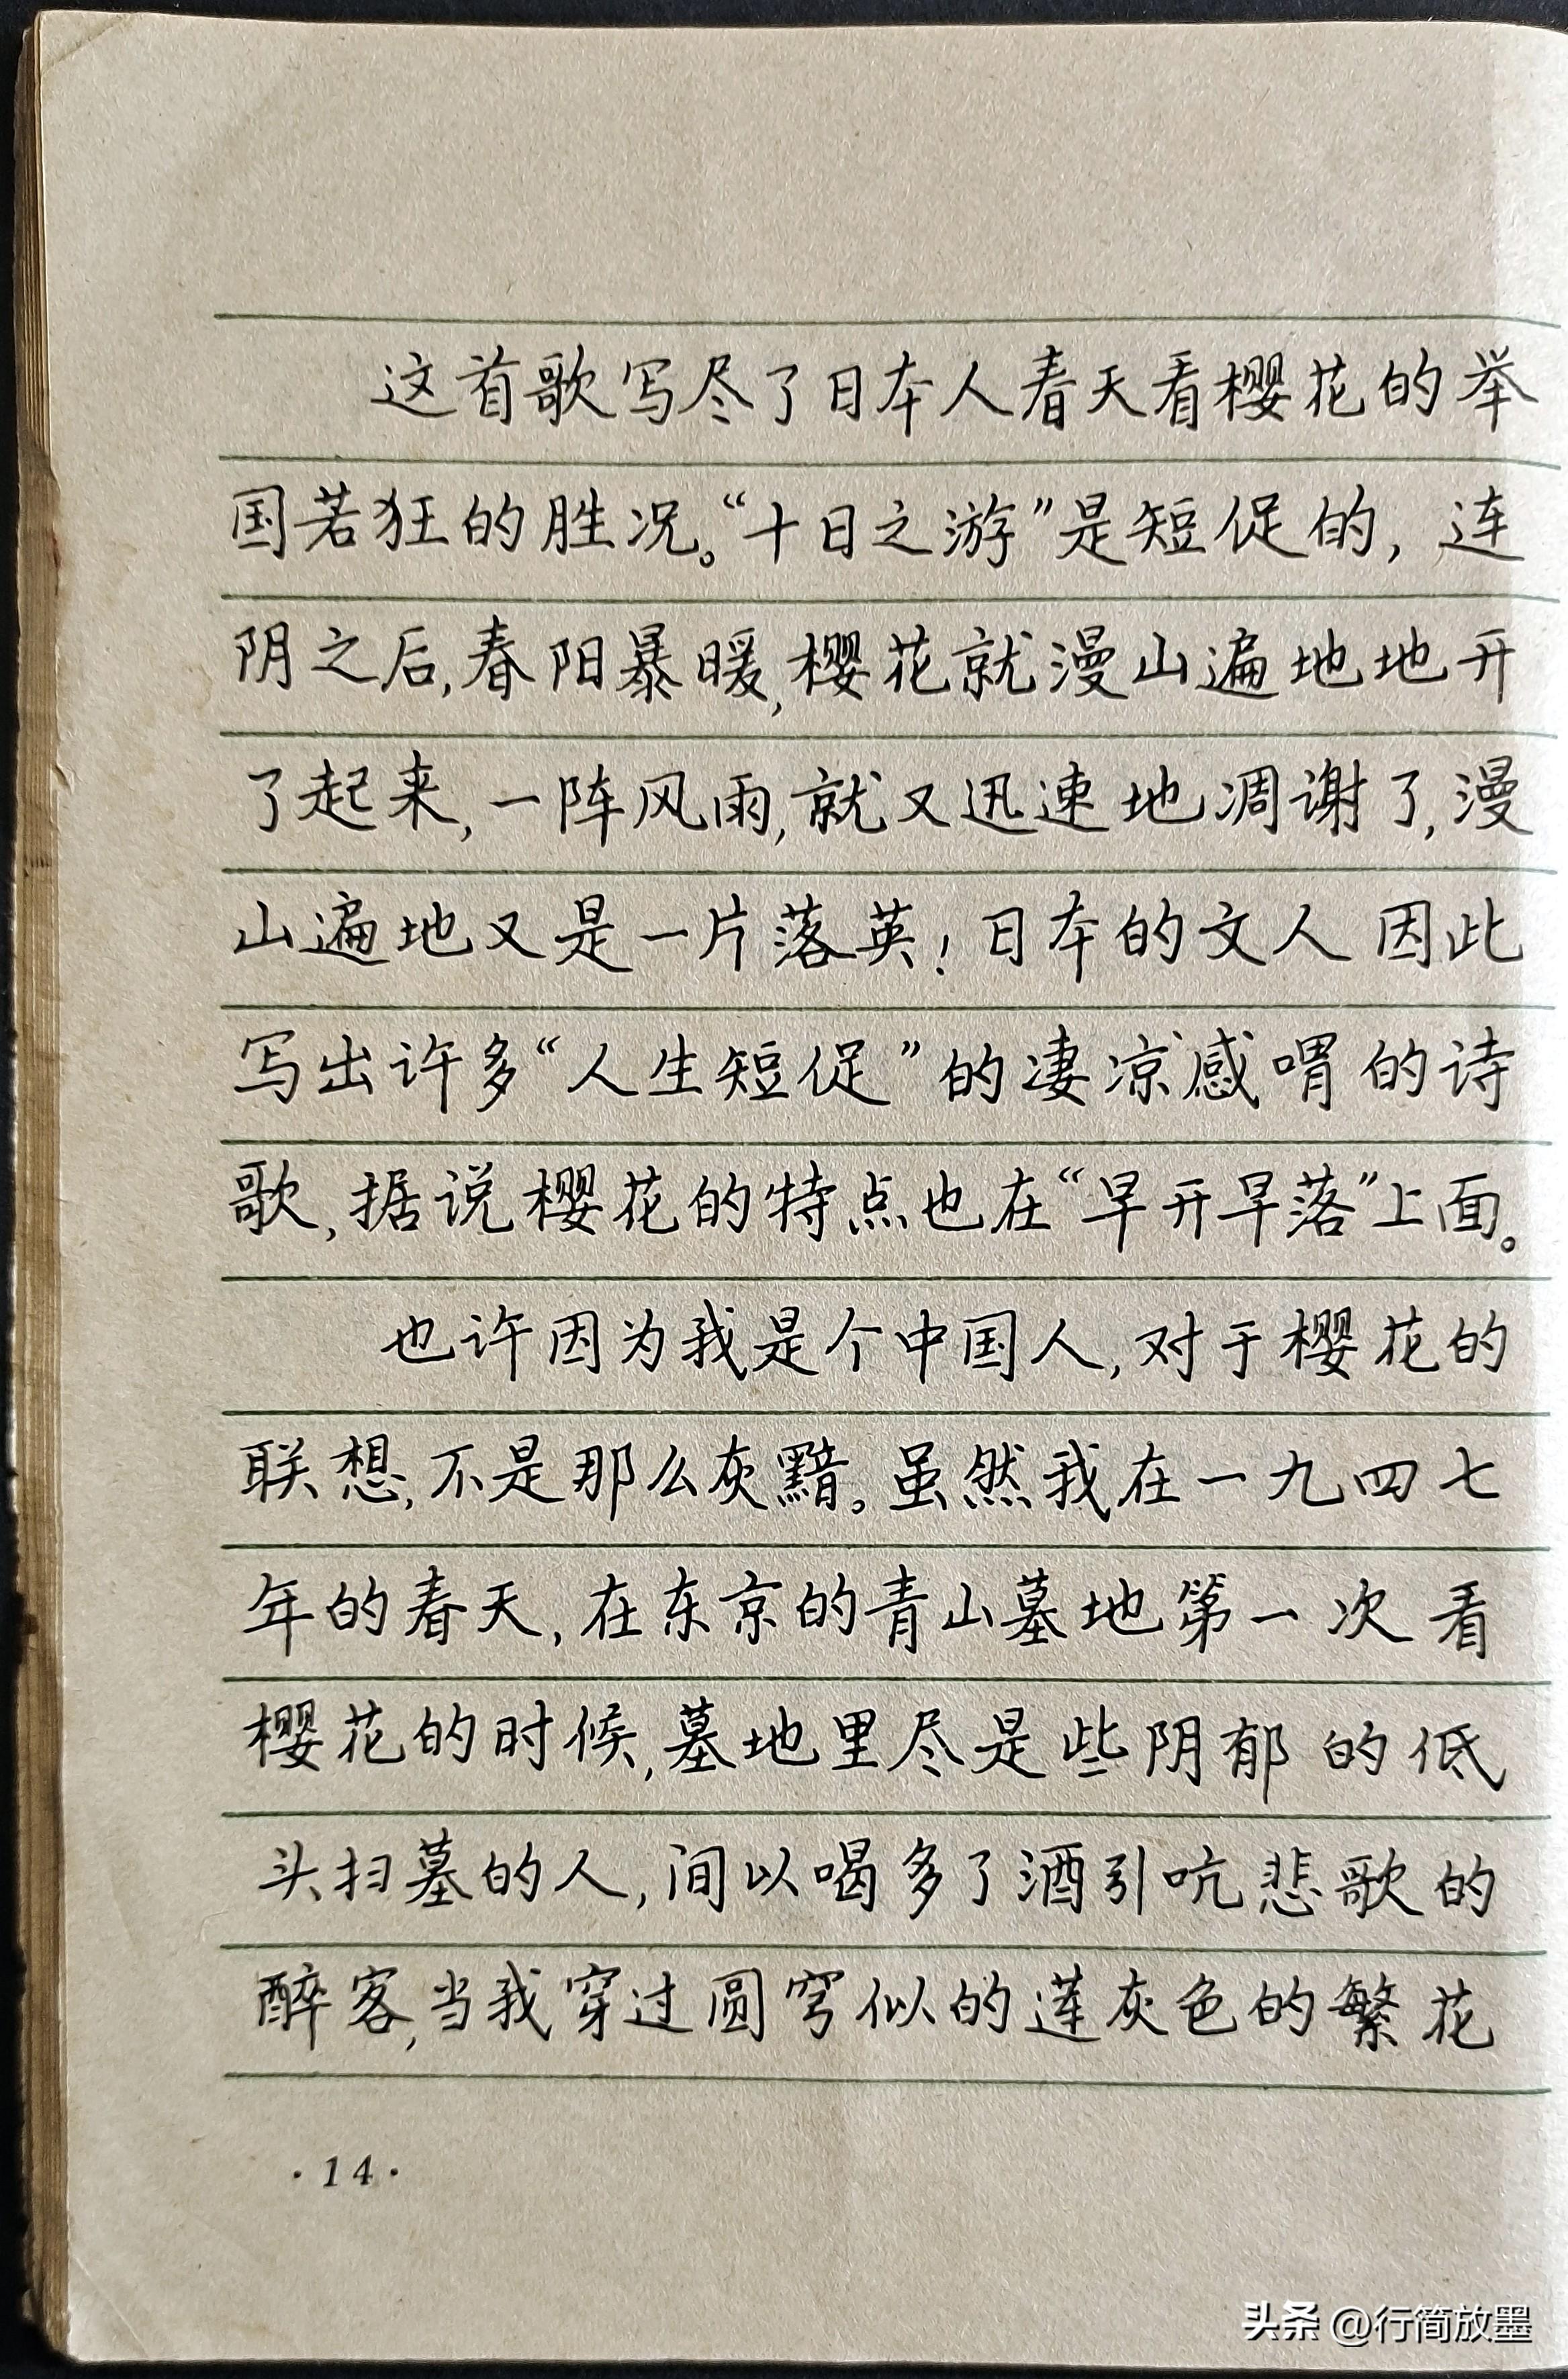 这首歌写尽了日本人春天看樱花的举
国若狂的胜况。“十日之游”是短促的，连
阴之后，春阳暴暖，樱花就漫山遍地地开
了起来，一阵风雨，就又迅速地凋谢了，漫
山遍地又是一片落英！日本的文人因此
写出许多“人生短促”的凄凉感喟的诗
歌，据说樱花的特点也在“早开早落”上面。
也许因为我是个中国人，对于樱花的
联想，不是那么灰黯。虽然我在一九四七
年的春天，在东京的青山墓地第一次看
樱花的时候，墓地里尽是些阴郁的低
头扫墓的人，间以喝多了酒引吭悲歌的
醉客，当我穿过圆穹似的莲灰色的繁花
·14·
头条 @行简放墨